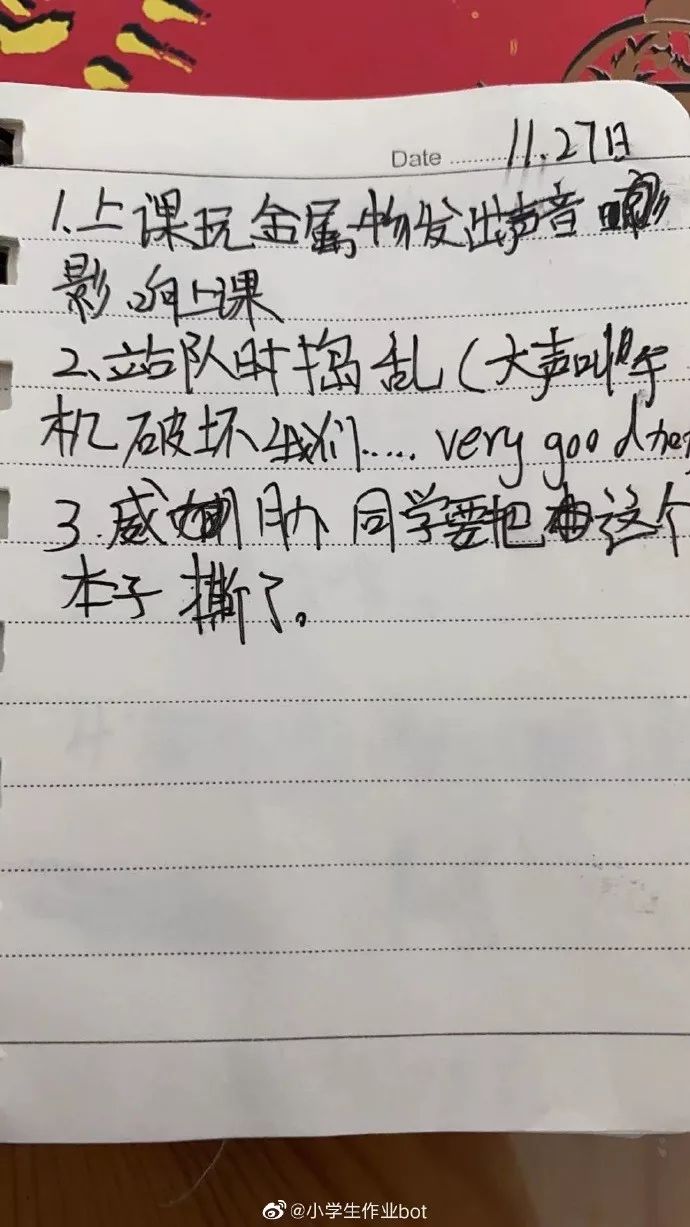 Date 11.27日
1.上课玩金属物发出声音
影响上课
2.站队时捣乱(大声叫
机破坏我们..... very good
3.威 同学要把 这个
本子撕了。
@小学生作业bot